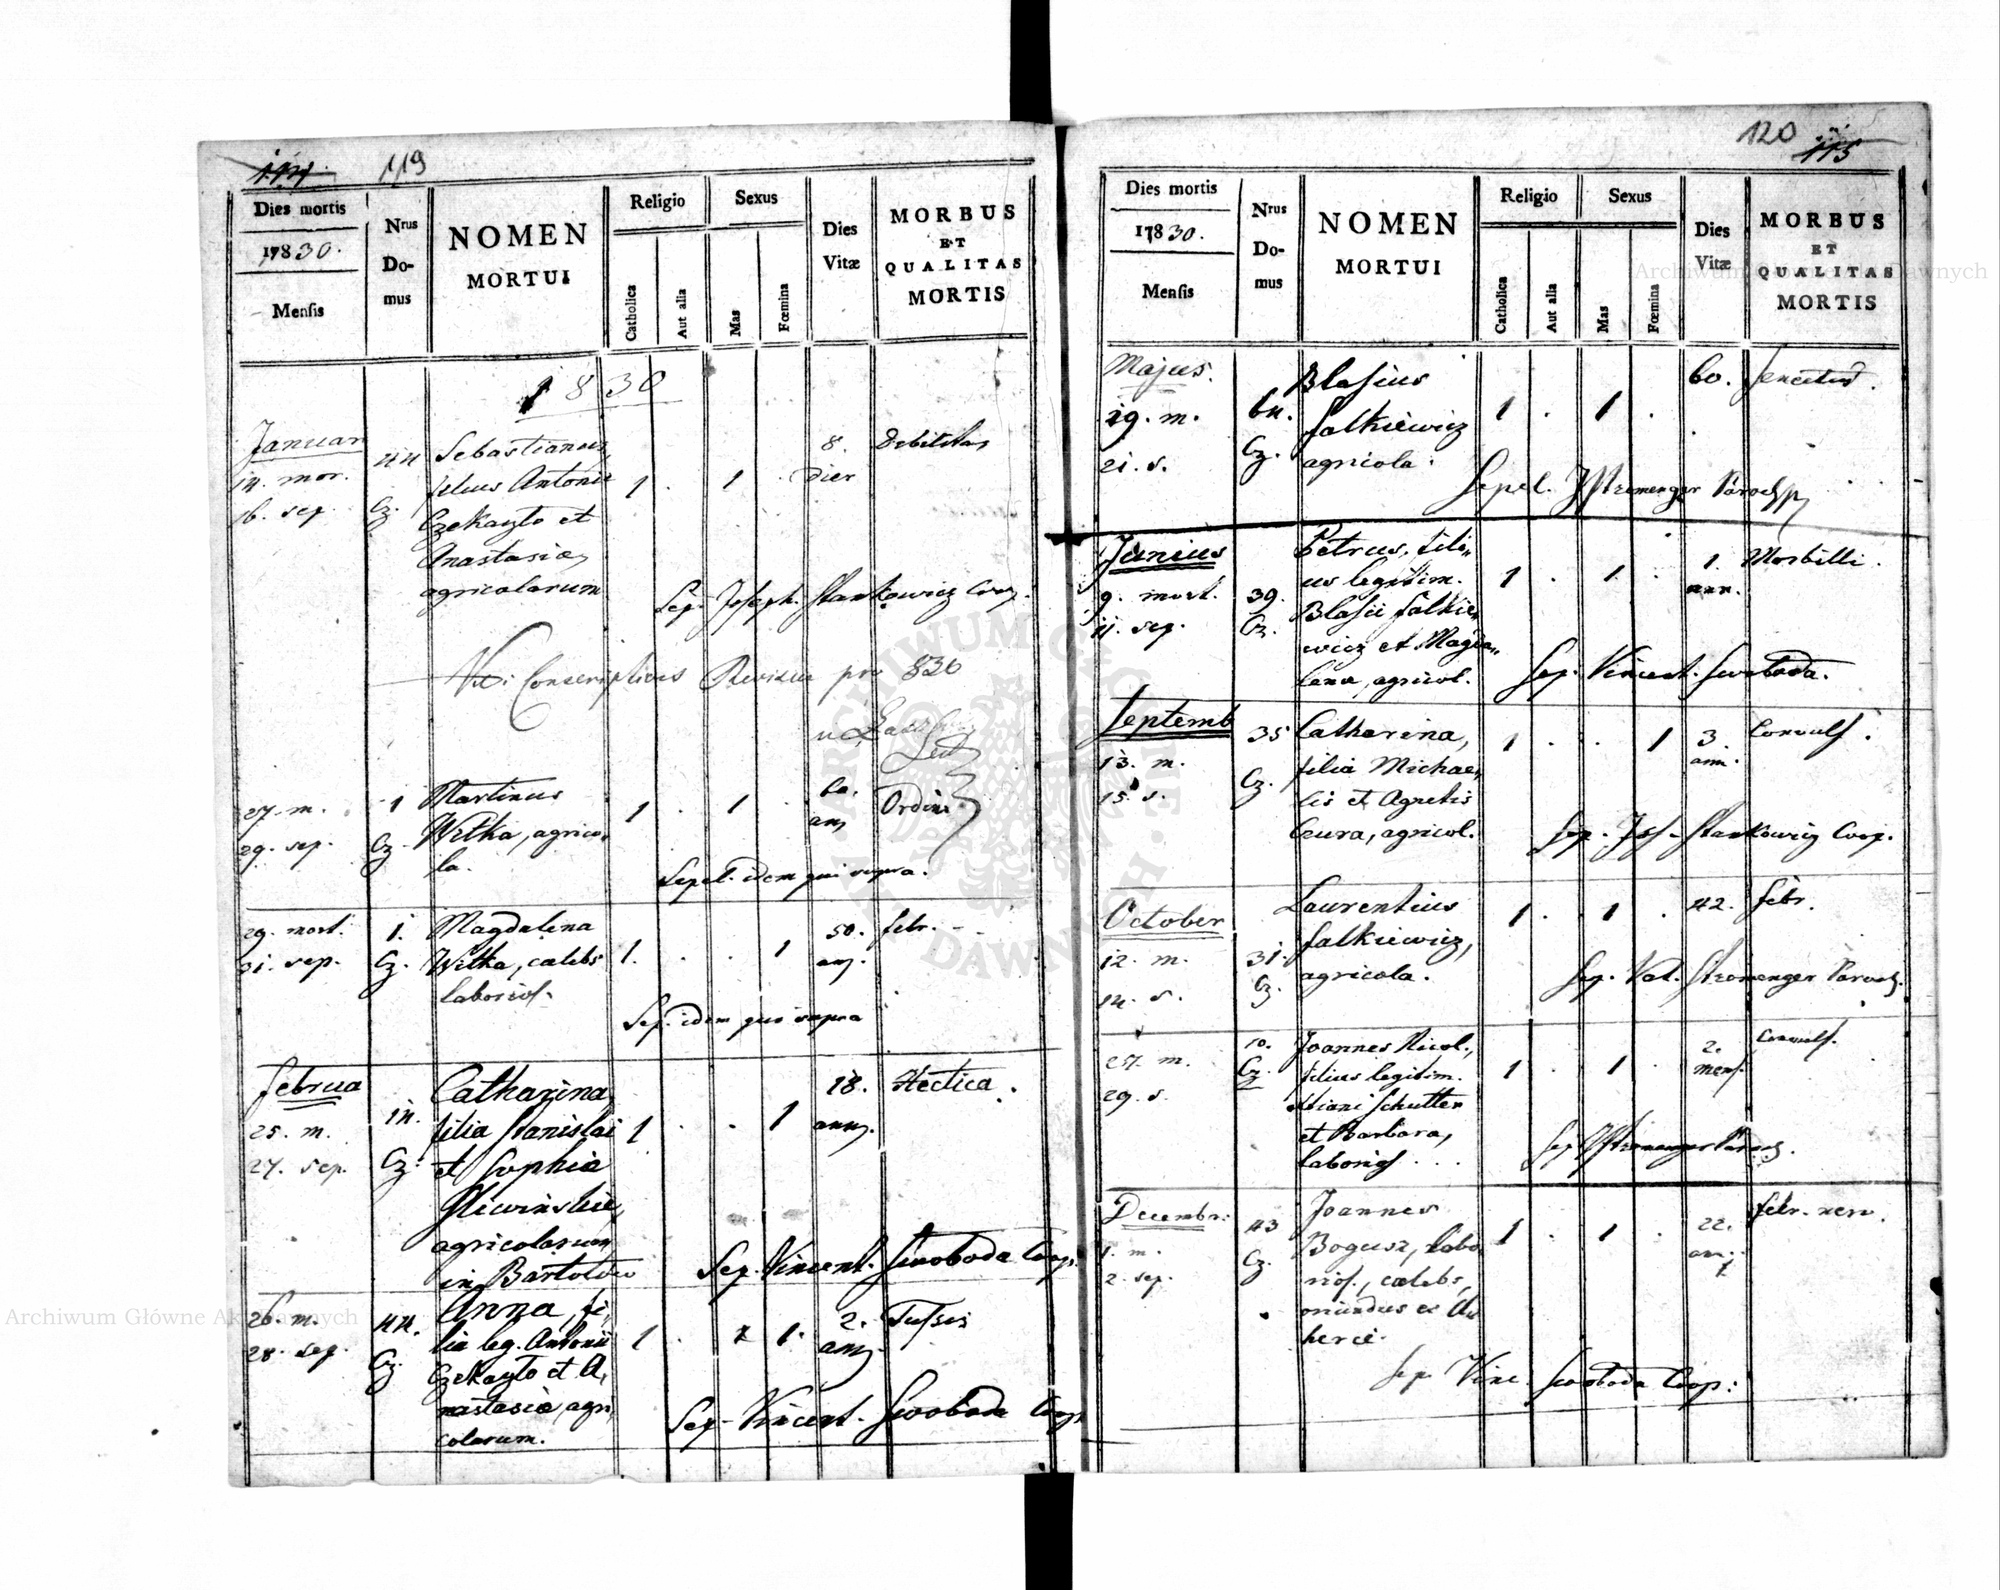 114 119
Dies mortis
1830.
Mensis
Nrus
Do-
mus
NOMEN
MORTUI
Religio
Catholica
Aut alia
Sexus
Mas
Fœmina
Dies
Vitæ
MORBUS
ET
QUALITAS
MORTIS
1830
Januar
14. mor.
16. sep.
44
Cz.
Sebastianus,
filius Antonii
Czekayto et
Anastasiæ,
agricolarum
1 . 1 .
8.
dier
Debilitas
Sep. Joseph. Stankowicz Coop.
Conscriptions Revisur pro 830
27. m.
29. sep.
1
Cz.
Martinus
Witka, agrico-
la.
1 . 1 .
60.
ann
Ordin
Sepel. idem qui supra.
29. mort.
31. sep.
1.
Cz.
Magdalena
Witka, cælebs
laborios.
1. . . 1
50.
ann.
febr.
Sep. idem qui supra
Februa
25. m.
27. sep.
14.
Cz.
Catharina,
filia Stanislai
et Sophia
Gliwinskie,
agricolarum
in Bartoldo
1 . . 1
18.
ann.
Hectica.
Sep. Vincent. Swoboda Coop.
26. m.
28. sep.
44.
Cz.
Anna, fi-
lia leg. Antonii
Czekayto et A,
nastasiæ, agri,
colarum.
1 . 1.
2.
ann.
Tussis
Sep. Vincent. Swoboda Coop.
120 115
Dies mortis
1830.
Mensis
Nrus
Do-
mus
NOMEN
MORTUI
Religio
Catholica
Aut alia
Sexus
Mas
Fœmina
Dies
Vitæ
MORBUS
ET
QUALITAS
MORTIS
Majus.
19. m.
21. s.
64.
Cz.
Blasius
Falkiewicz
agricola.
1 . 1 .
60.
Senectus.
Sepel. Stromenger Paroch
Junius
9. mort.
11. sep.
39.
Cz.
Petrus, fili,,
us legitim.
Blasii Falkie,,
wicz et Magda,,
lena, agricol.
1 . 1 .
1.
ann.
Morbilli.
Sep. Vincent. Swoboda.
Septemb
13. m.
15. s.
35
Cz.
Catharina,
filia Michae,,
lis et Agnetis
Cura, agricol.
1 . . 1
3.
ann.
Convuls.
Sep. Jos. Stankowicz Coop.
October
12. m.
14. s.
31.
Cz.
Laurentius
Falkiewicz,
agricola.
1 . 1 .
42.
febr.
Sep. Val. Stromenger Paroch.
27. m.
29. s.
10.
Cz.
Joannes Nicol.,
filius legitim.
Schutter
et Barbara,
laborios . . .
1 . 1 .
2.
mens.
Convuls.
Sep. Stromenger Paroch.
Decembr:
1. m.
2. sep.
43
Cz.
Joannes
Bogusz, labo
rios., cælebs,
oriundus ex Au
herce.
1 . 1 .
22.
ann.
febr. nerv.
Sep. Vinc. Swoboda Coop:
Archiwum Główne Akt Dawnych
Archiwum Główne Akt Dawnych
ARCHIWUM GŁÓWNE AKT DAWNYCH